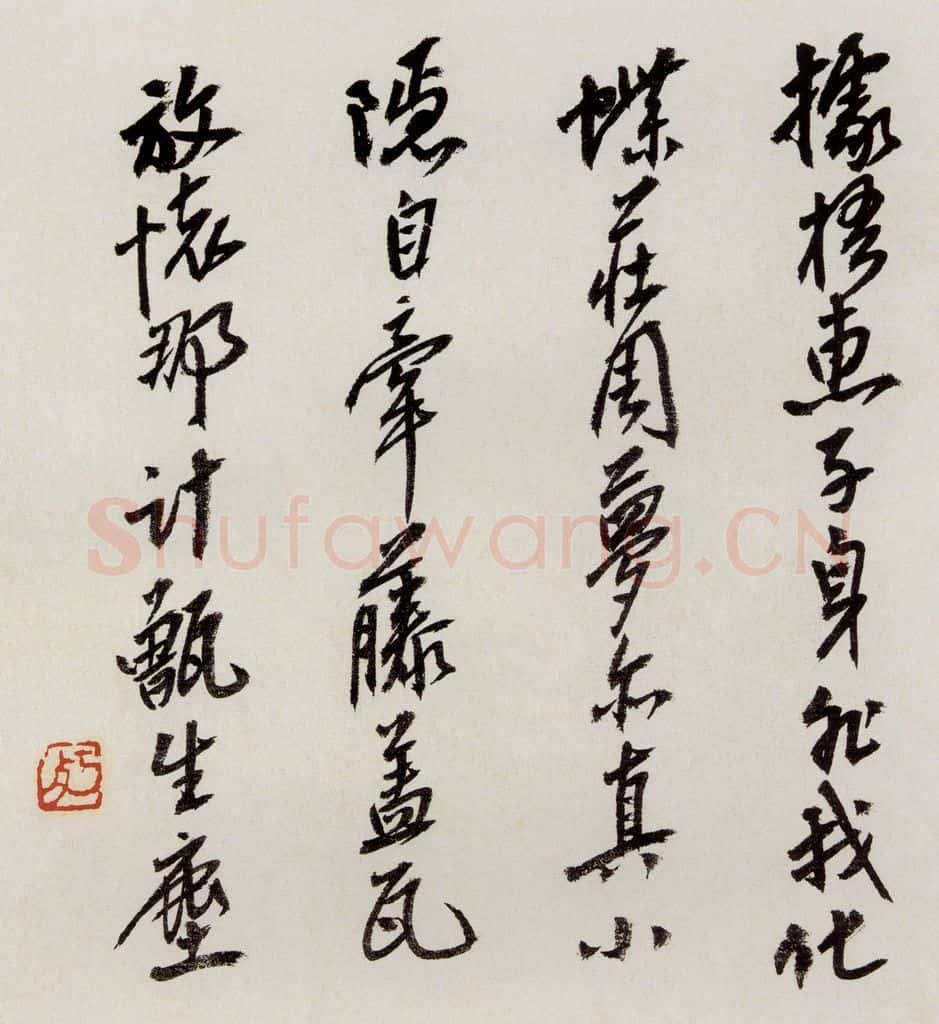 據梧惠子身非我化
蝶莊周夢亦真小
隱自牽藤蓋瓦
放懷那計甑生塵
Shufawang.CN